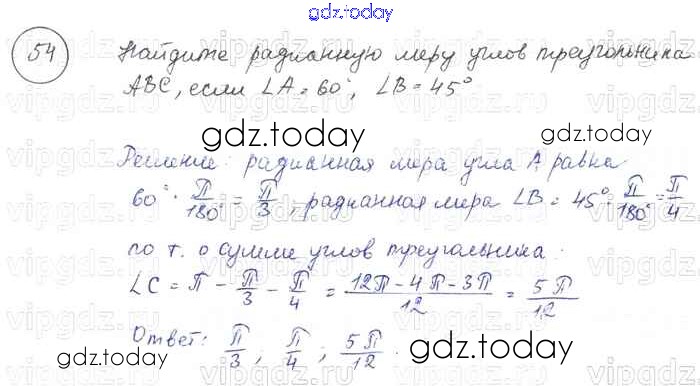 gdz.today
54
Найдите радианную меру углов треугольника
ABC, если ∠A = 60°, ∠B = 45°
gdz.today
gdz.today
Решение: радианная мера угла A равна
60° · π/180° = π/3, радианная мера ∠B = 45° · π/180° = π/4
по т. о сумме углов треугольника:
∠C = π - π/3 - π/4 = (12π - 4π - 3π)/12 = 5π/12
Ответ: π/3; π/4; 5π/12.
gdz.today
gdz.today